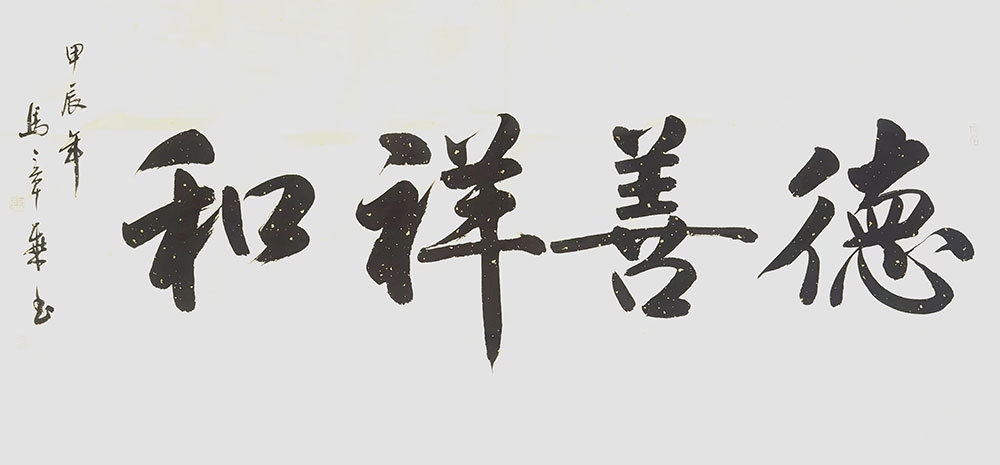 德善祥和
甲辰年
馬章乘书